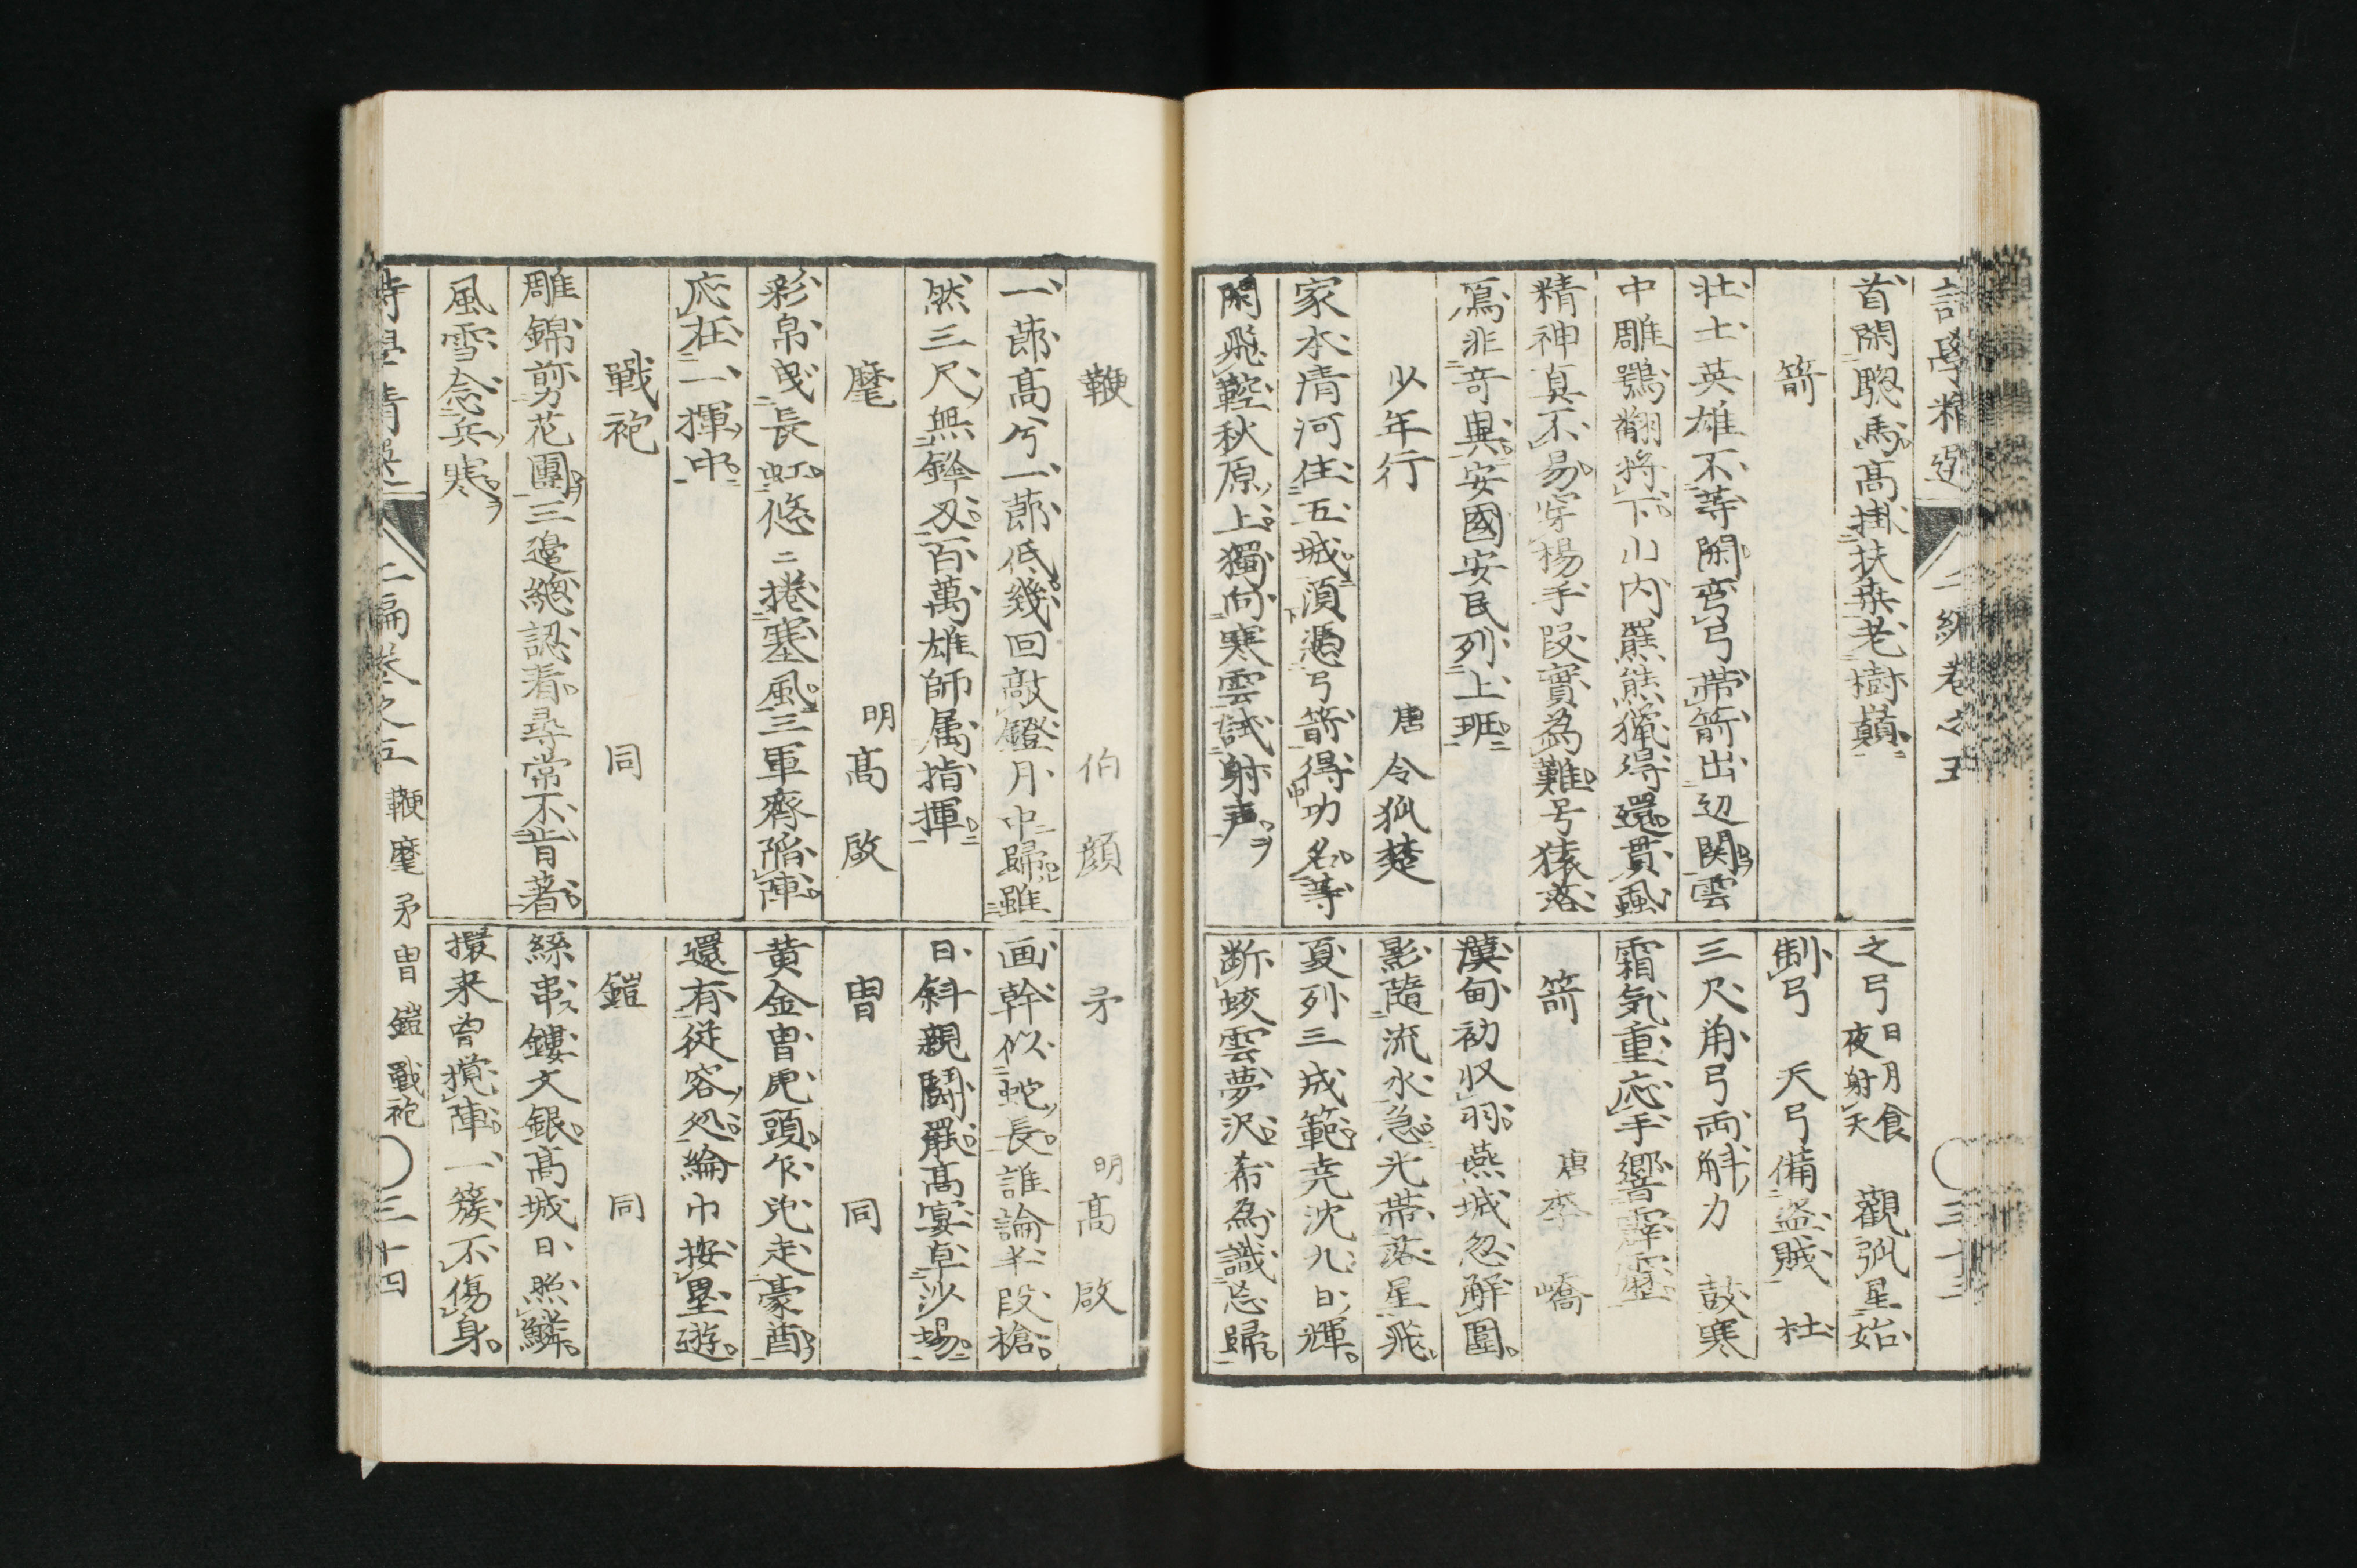 詩學精選 二編卷之五 三十三
首閑騘馬高掛扶桑老樹巔
箭
壮士英雄不等閑弯弓帯箭出辺関雲
中雕鶚翻将下山内羆熊獵得還貫虱
精神真不易穿楊手段實為難号猿落
寫非竒異安國安民列上班
少年行 唐 令狐楚
家本清河住五城須憑弓箭得功名等
閑飛鞚秋原上獨向寒雲試射声
之弓 日月食夜射天 觀弧星始
制弓 天弓備盗賊 杜
三尺角弓両斛力 鼓寒
霜気重応手響霹靂
箭 唐 李嶠
漢甸初収羽燕城忽解圍
影隨流水急光帯落星飛
夏列三成範尭沈九日輝
断蛟雲夢沢希為識忘歸
鞭 伯顔
一莭高兮一莭低幾回敲鐙月中歸雖
然三尺無鋒刃百萬雄師属指揮
麾 明 高啟
彩帛曳長虹悠二捲塞風三軍齊陥陣
応在一揮中
戰袍 同
雕錦剪花團三邉總認看尋常不肯著
風雪念兵寒
矛 明 高啟
画幹似蛇長誰論半段槍
日斜親鬪罷高宴卓沙場
冑 同
黄金冑虎頭乍兜走豪酋
還有従容処綸巾按塁遊
鎧 同
絲串鏤文銀髙城日照鱗
擐来曾攪陣一簇不傷身
詩學精選 二編卷之五 鞭 麾 矛 冑 鎧 戰袍 三十四